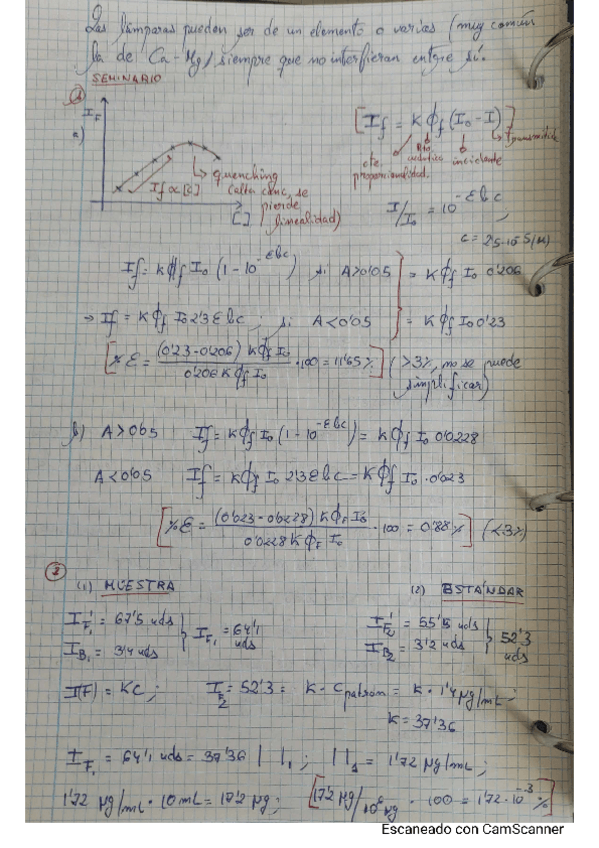 Las lámparas pueden ser de un elemento o varios (muy común
la de Ca-Mg), siempre que no interfieran entre sí.
SEMINARIO
1
a)
I_F
If ∝ [C]
quenching
(alta conc, se
pierde
linealidad)
[C]
[If = K ϕf (I0 - I)]
cte
proporcionalidad.
Rto
cuántico
incidente
Transmitida
I/I0 = 10^-εbc ;
c = 2'5·10^-5 (M)
If = Kϕf I0 (1 - 10^-εbc) si A>0'05 } = Kϕf I0 0'206
→ If = Kϕf I0 2'3 εbc ; si A<0'05 } = Kϕf I0 0'23
[%E = (0'23-0'206) Kϕf I0 / 0'206 Kϕf I0 · 100 = 11'65%] (>3%, no se puede
simplificar)
b) A>0'05 If = Kϕf I0 (1 - 10^-εbc) = Kϕf I0 0'0228
A<0'05 If = Kϕf I0 2'3 εbc = Kϕf I0 · 0'023
[%E = (0'023-0'0228) Kϕf I0 / 0'0228 Kϕf I0 · 100 = 0'88%] (<3%)
2
(1) MUESTRA
(2) ESTÁNDAR
I'F1 = 67'5 uds } IF1 = 64'1
IB1 = 3'4 uds uds
I'F2 = 55'5 uds } 52'3
IB2 = 3'2 uds uds
I(F) = KC ; IF2 = 52'3 = K · Cpatrón = K · 1'4 μg/mL ;
K = 37'36
IF1 = 64'1 uds = 37'36 [ ]1 ; [ ]1 = 1'72 μg/mL ;
1'72 μg/mL · 10 mL = 17'2 μg ; [17'2 μg/10^6 μg · 100 = 1'72·10^-3 %]
Escaneado con CamScanner